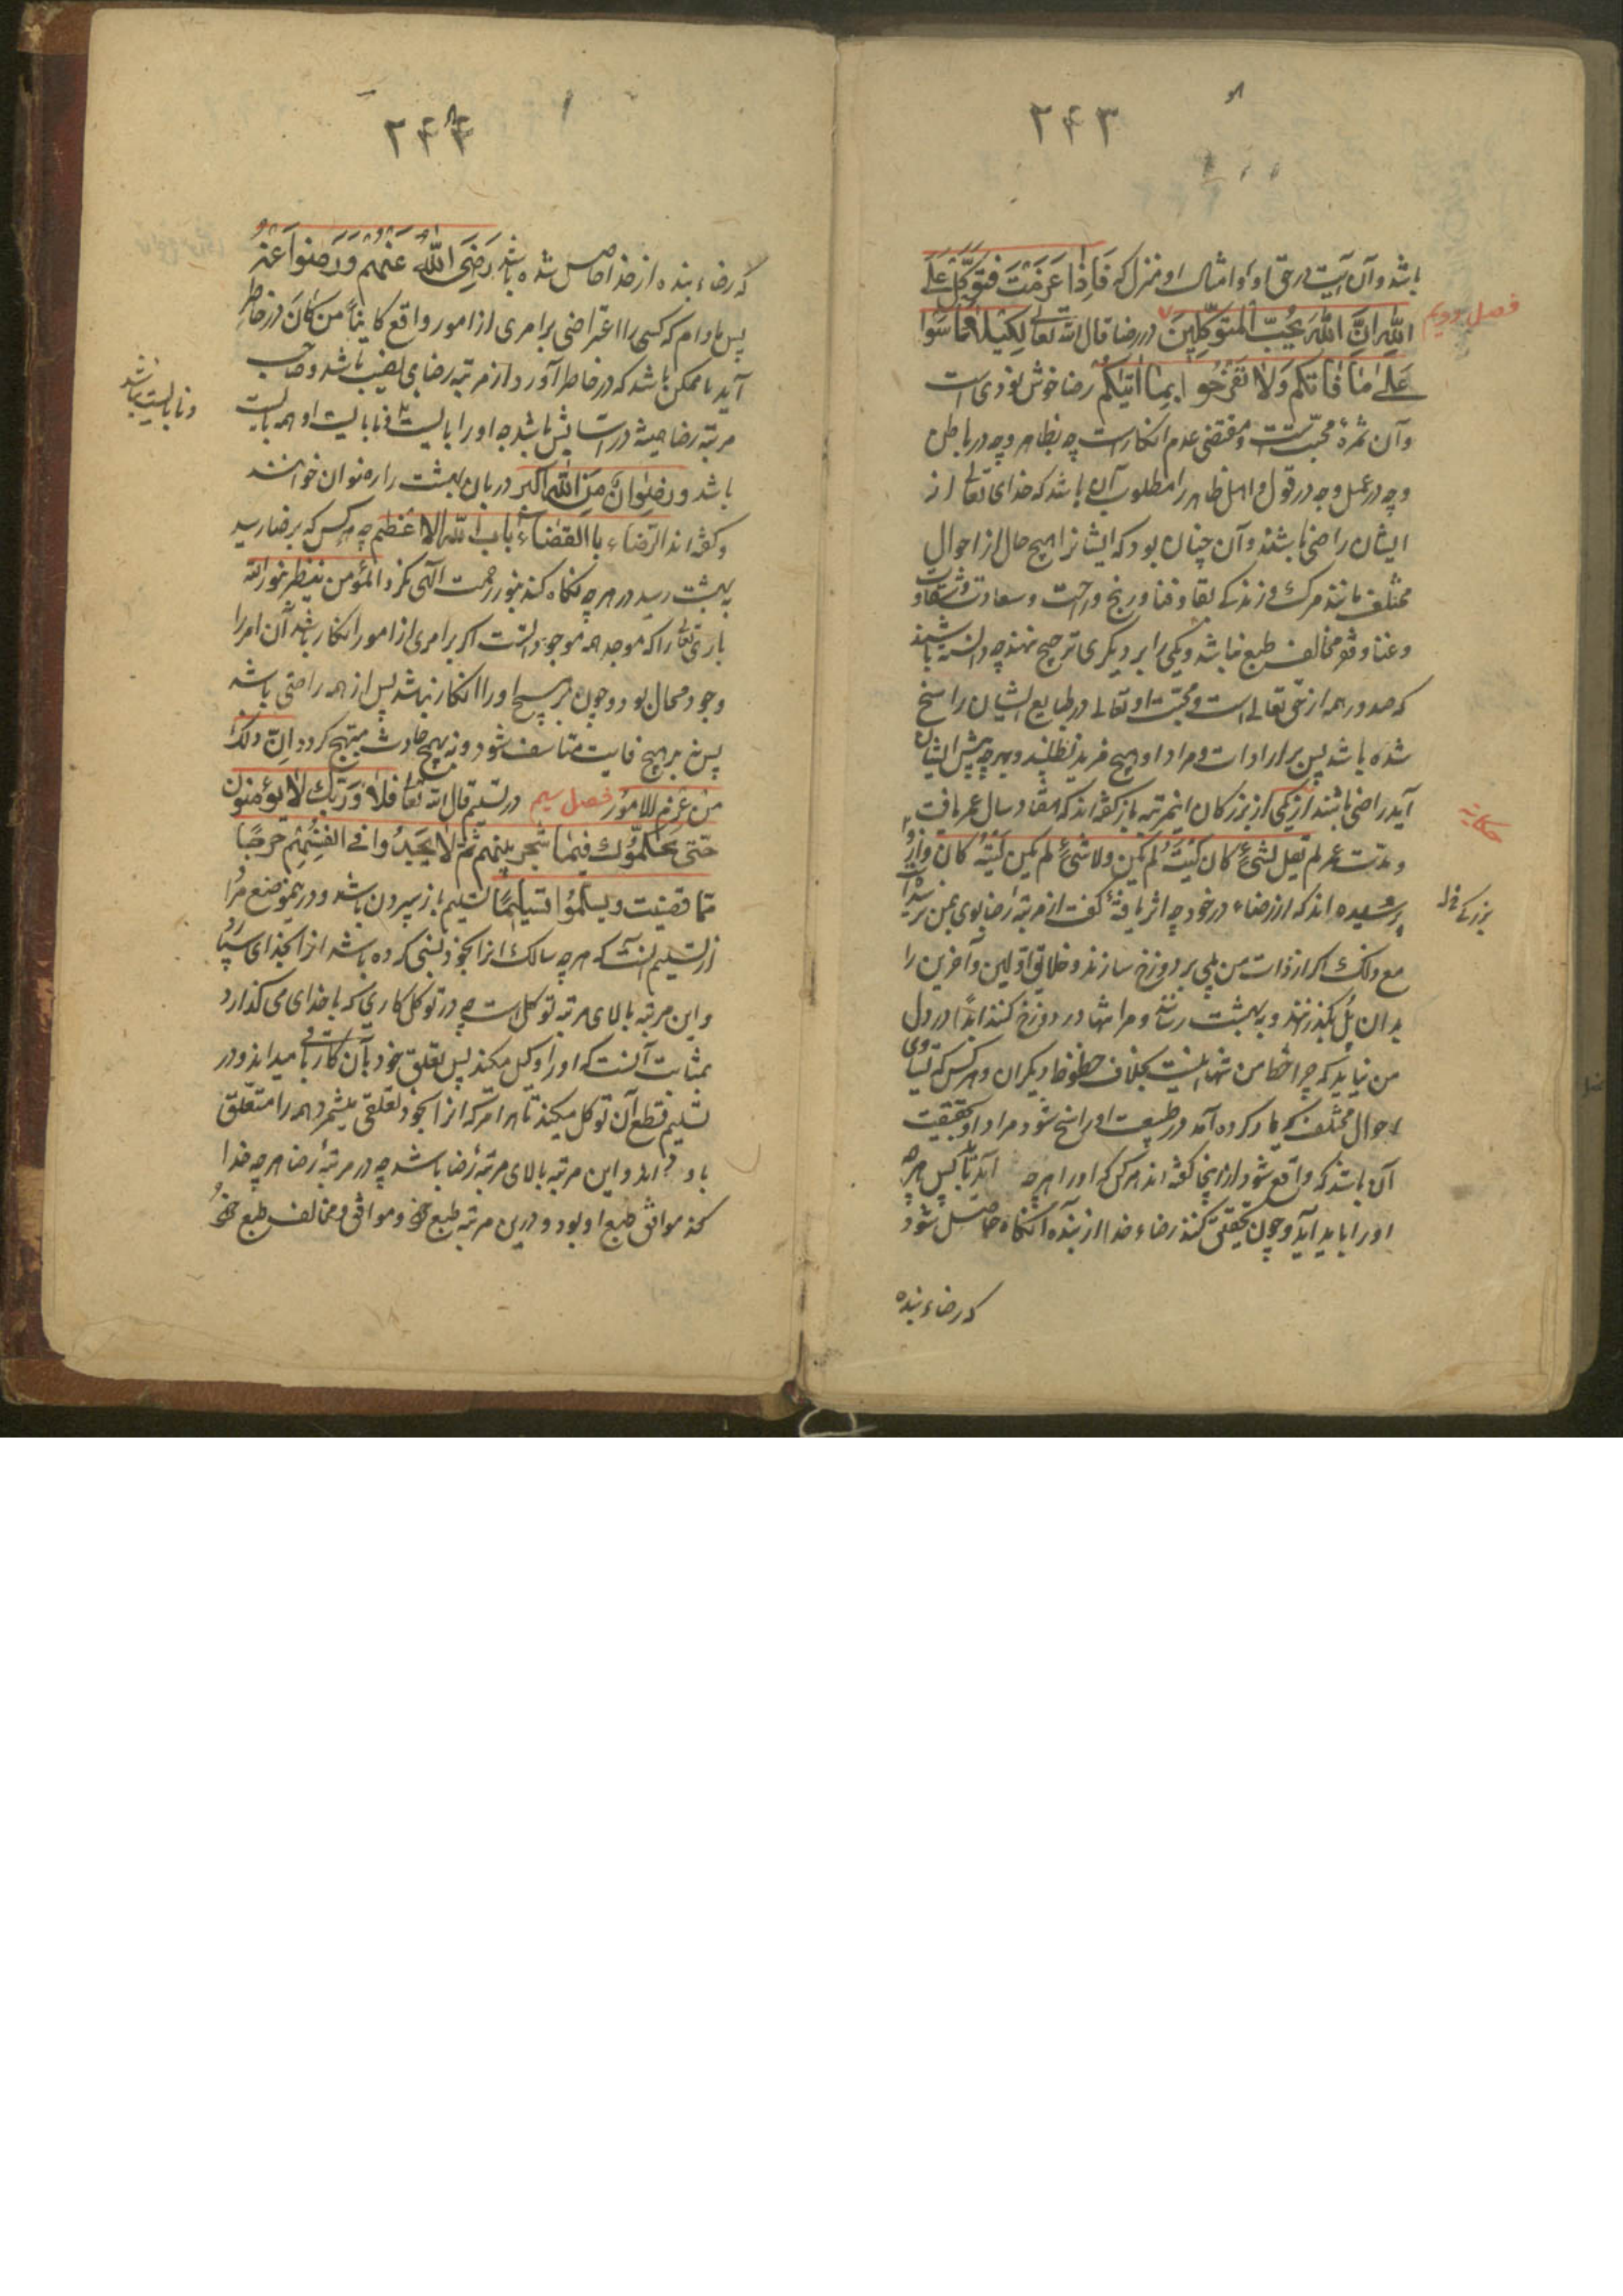 ۲۴۳
باشد و آن آیت در حق او و امثال او منزل که فَاِذا عَزَمْتَ فَتَوَکَّلْ عَلَی
اللّٰهِ اِنَّ اللّٰهَ یُحِبُّ الْمُتَوَکِّلِینَ در رضا قال الله تعالی لِکَیْلا تَأسَوْا
فصل دویم
عَلٰی مٰا فٰاتَکُم وَلاٰ تَفْرَحُوا بِمٰا اٰتیٰکُمْ رضا خوش نودی است
و آن ثمرهٔ محبّت است و مقتضی عدم انکار است چه بظاهر و چه در باطن
و چه در عمل و چه در قول و اهل ظاهر را مطلوب آن باشد که خدای تعالی از
ایشان راضی باشند و آن چنان بود که ایشانرا هیچ حال از احوال
مختلف مانند مرک و زندکی و بقا و فنا و رنج و راحت و سعادت و شقاوت
و غنا و فقر مخالف طبع نباشد و یکی را بر دیکری ترجیح ننهند چه دانسته باشند
که صدور همه از حق تعالی است و محبّت او تعالی در طبایع ایشان راسخ
شده باشد پس بر ارادات و مراد او هیچ مزید نطلبند و بهر چه پیش ایشان
آید راضی باشند از یکی از بزرکان اینمرتبه باز کفته اند که هفتاد سال عمر یافت
حکایة
و در مدّت عمر لم یقل لشیءٍ کان لیته لم یکن ولا شیءٍ لم یکن لیته کان و از
پرسیده اند که از رضاء در خود چه اثر یافتهٔ کفت از مرتبهٔ رضا بوی بمن نرسیده است
بزرکی
مع ذلک اکر از ذات من پلی بر دوزخ سازند و خلایق اوّلین و آخرین را
بدان پُل بکذرانند و به بهشت رسانند و مرا تنها در دوزخ کنند ابداً در دل
من نیاید که چرا حظ من تنها اینست بخلاف حظوظ دیکران و هر کس که تساوی
احوال مختلف که یاد کرده آمد در طبیعت او راسخ شود مراد او بحقیقت
آن باشد که واقع شود از اینجا کفته اند هر کس که او را هر چه آید باید پس هر چه
او را باید آید و چون تحقیق کنند رضاء خدا از بنده آنکاه حاصل شود
که رضاء بنده
۲۴۴
که رضاء بنده از خدا حاصل شده باشد رَضِیَ اللّٰهُ عَنْهُمْ وَرَضُوا عَنْهُ
پس مادام که کسی را اعتراضی بر امری از امور واقع کایناً من کان در خاطر
آید یا ممکن باشد که در خاطر آورد از مرتبه رضا بی نصیب باشد و صاحب
مرتبه رضا همیشه در آسایش باشد چه او را بایست و نابایست او همه بایست
و نابایست نباشد
باشد و رِضوانٌ مِنَ اللّٰهِ اکبر دربان بهشت را رضوان خوانند
و کفته اند الرّضاء بالقضاء باب اللّٰه الاعظم چه هر کس که برضا رسید
به بهشت رسید در هر چه نکاه کند بنور رحمت الٰهی نکرد المؤمن ینظر بنور الله
باری تعالی را که موجد همه موجودانست اکر بر امری از امور انکار باشد آن امر را
وجود محال بود و چون بر هیچ او را انکار نباشد پس از همه راضی باشد
پس نه بر هیچ فایت متأسف شود و نه بهیچ حادث مبتهج کردد اِنّ ذلک
من عَزم الامور فصل سیم در تسلیم قال الله تعالی فلاٰ وَ رَبّک لاٰ یُؤمنون
حتی یحکّموک فیمٰا شجر بینهم ثم لاٰ یجدُوا فی انفسهم حرجًا
ممّا قضیت ویسلّمُوا تسلیمًا تسلیم باز سپردن باشد و در این موضع مُراد
از تسلیم آنست که هر چه سالک انرا بخود نسبتی کرده باشد انرا بخدای سپارد
و این مرتبه بالای مرتبه توکل است چه در توکل کاری که با خدای می کذارد
بمثابت آنست که او را وکیل میکند پس تعلق خود بآن کار باقی میداند و در
تسلیم قطع آن توکل میکند تا هر امر که انرا بخود تعلقی میشمرد همه را متعلّق
باو داند و این مرتبه بالای مرتبهٔ رضا باشد چه در مرتبهٔ رضا هر چه خدا
کند موافق طبع او بود و درین مرتبه طبع خود و موافق و مخالف طبع خود